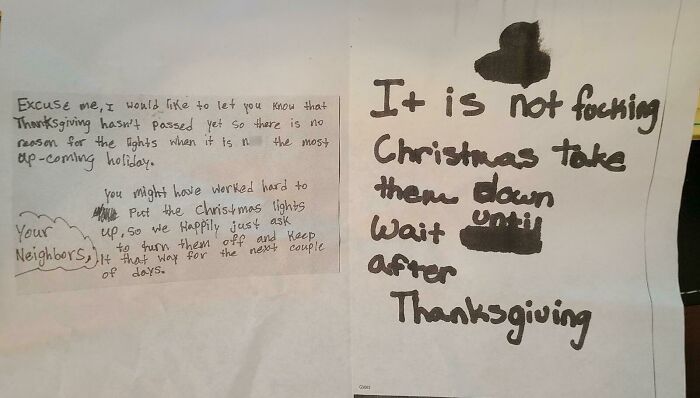 Excuse me, I would like to let you know that
Thanksgiving hasn't passed yet so there is no
reason for the lights when it is n the most
up-coming holiday.
you might have worked hard to
put the Christmas lights
up, so we Happily just ask
to turn them off and keep
it that way for the next couple
of days.
Your
Neighbors,
It is not fucking
Christmas take
them down
Wait until
after
Thanksgiving